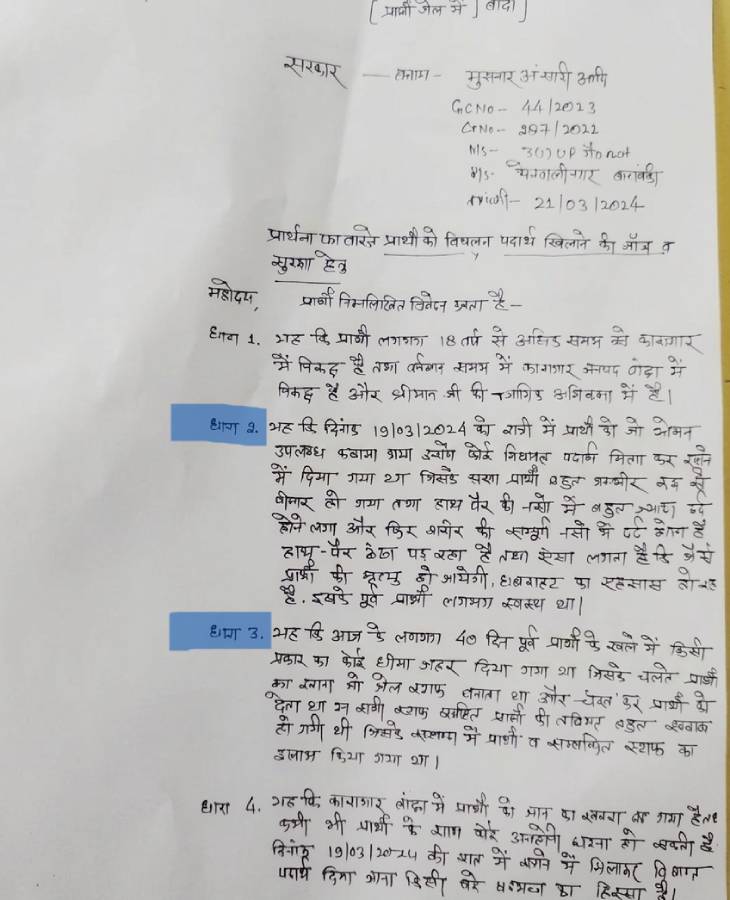 [ प्रार्थी जेल में ] बांदा ]
सरकार — बनाम - मुख्तार अंसारी आदि
GCNo - 44/2023
CrNo - 297/2022
U/S - 3(1) UP
P/S -
21/03/2024
प्रार्थना पत्र वास्ते प्रार्थी को विषाक्त पदार्थ खिलाने की जाँच व
सुरक्षा हेतु
महोदय,
प्रार्थी निम्नलिखित निवेदन करता है -
धारा 1. यह कि प्रार्थी लगभग 18 वर्ष से अधिक समय से कारागार
में निरुद्ध है तथा वर्तमान समय में कारागार जनपद बांदा में
निरुद्ध है और श्रीमान जी की न्यायिक अभिरक्षा में है।
धारा 2. यह कि दिनांक 19/03/2024 की रात्री में प्रार्थी को जो भोजन
उपलब्ध कराया गया उसमें कोई पदार्थ मिला कर खाने
में दिया गया था जिसके प्रार्थी बहुत गम्भीर रूप से
बीमार हो गया तथा हाथ पैर की नसों में बहुत ज्यादा दर्द
होने लगा और फिर शरीर की सम्पूर्ण नसों में दर्द है
हाथ-पैर ठंडा पड़ रहा है तथा ऐसा लगता है कि जैसे
प्रार्थी की मृत्यु हो जायेगी, घबराहट का एहसास हो रहा
है. इसके पूर्व प्रार्थी लगभग स्वस्थ था।
धारा 3. यह कि आज से लगभग 40 दिन पूर्व प्रार्थी के खाने में किसी
प्रकार का कोई धीमा जहर दिया गया था जिसके चलते प्रार्थी
का खाना जो जेल स्टाफ बनाता था और चख कर प्रार्थी को
देता था उन सभी स्टाफ सहित प्रार्थी की तबियत बहुत खराब
हो गयी थी जिसके सम्बन्ध में प्रार्थी व सम्बन्धित स्टाफ का
इलाज किया गया था।
धारा 4. यह कि कारागार बांदा में प्रार्थी की जान का खतरा बढ़ गया है तथा
कभी भी प्रार्थी के साथ कोई अनहोनी घटना हो सकती है
दिनांक 19/03/2024 की रात में खाने में मिलाकर विषाक्त
पदार्थ दिया जाना किसी बड़े षडयन्त्र का हिस्सा है।